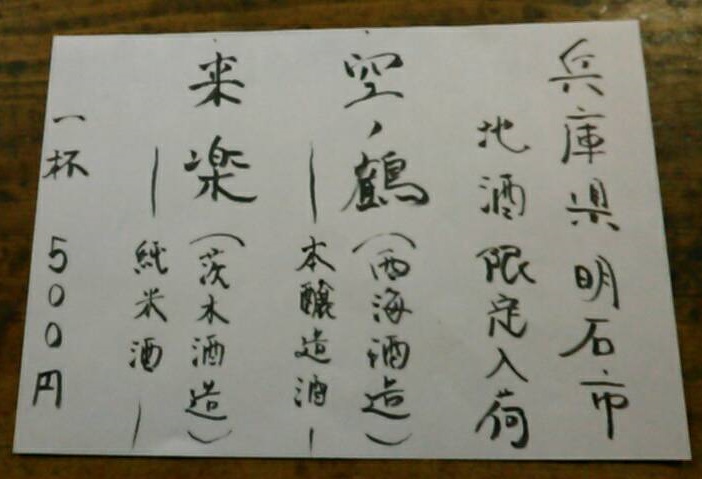 兵庫県明石市
地酒限定入荷
空ノ鶴(西海酒造)
―本醸造酒―
来楽(茨木酒造)
―純米酒―
一杯 500円